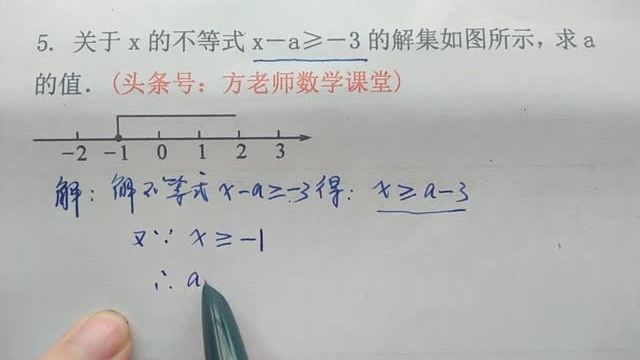 5. 关于 x 的不等式 x－a≥－3 的解集如图所示，求 a
的值．(头条号：方老师数学课堂)
－2 －1 0 1 2 3
解：解不等式 x-a≥-3得：x≥a-3
又∵ x≥-1
∴ a